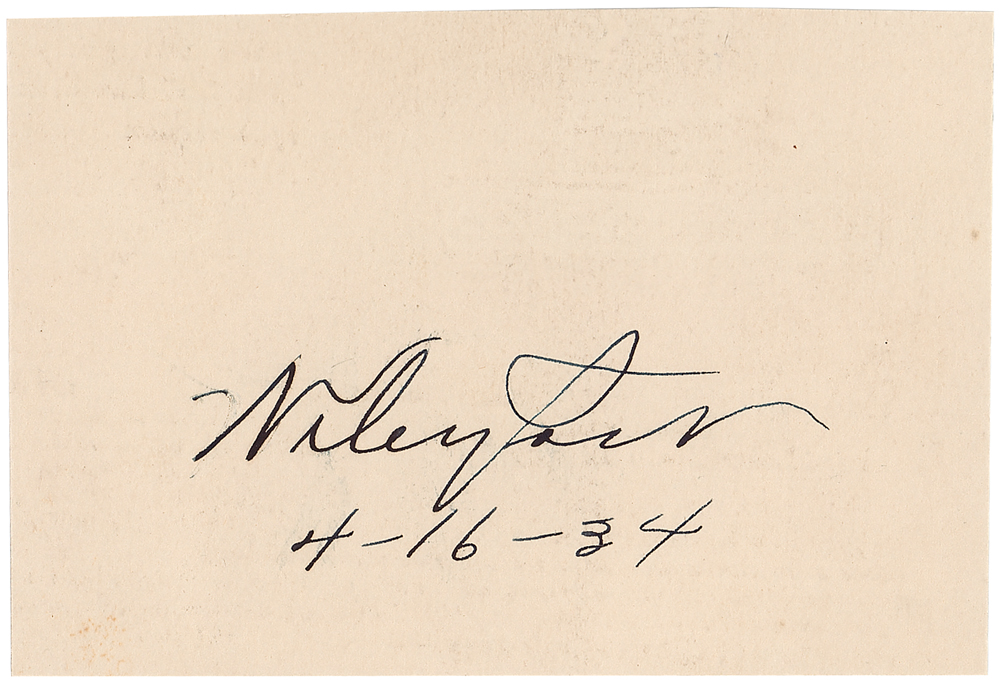 Wiley Post
4-16-34